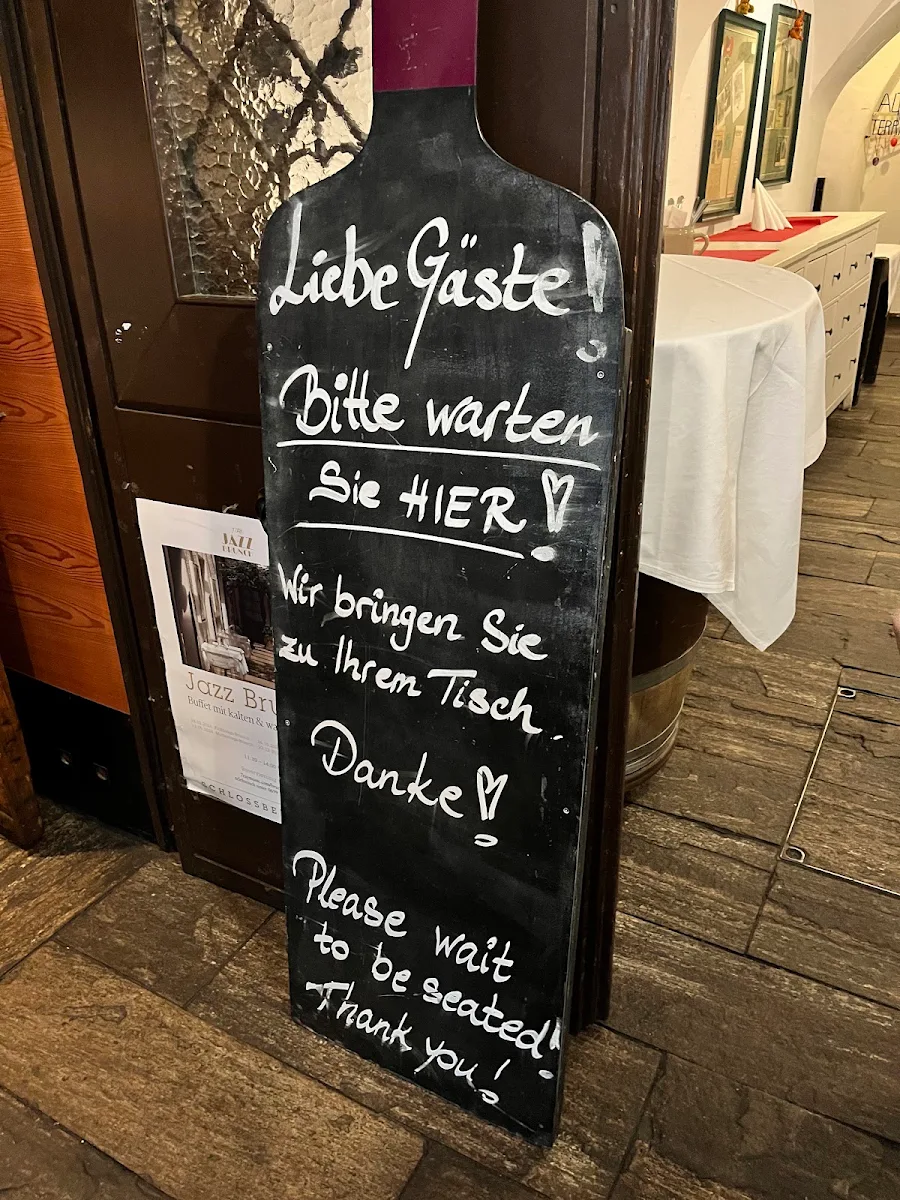 Liebe Gäste!
Bitte warten
Sie HIER!
Wir bringen Sie
zu Ihrem Tisch.
Danke!
Please wait
to be seated!
Thank you!
JAZZ
BRUNCH
Jazz Bru
Buffet mit kalten & wa
SCHLOSSBE